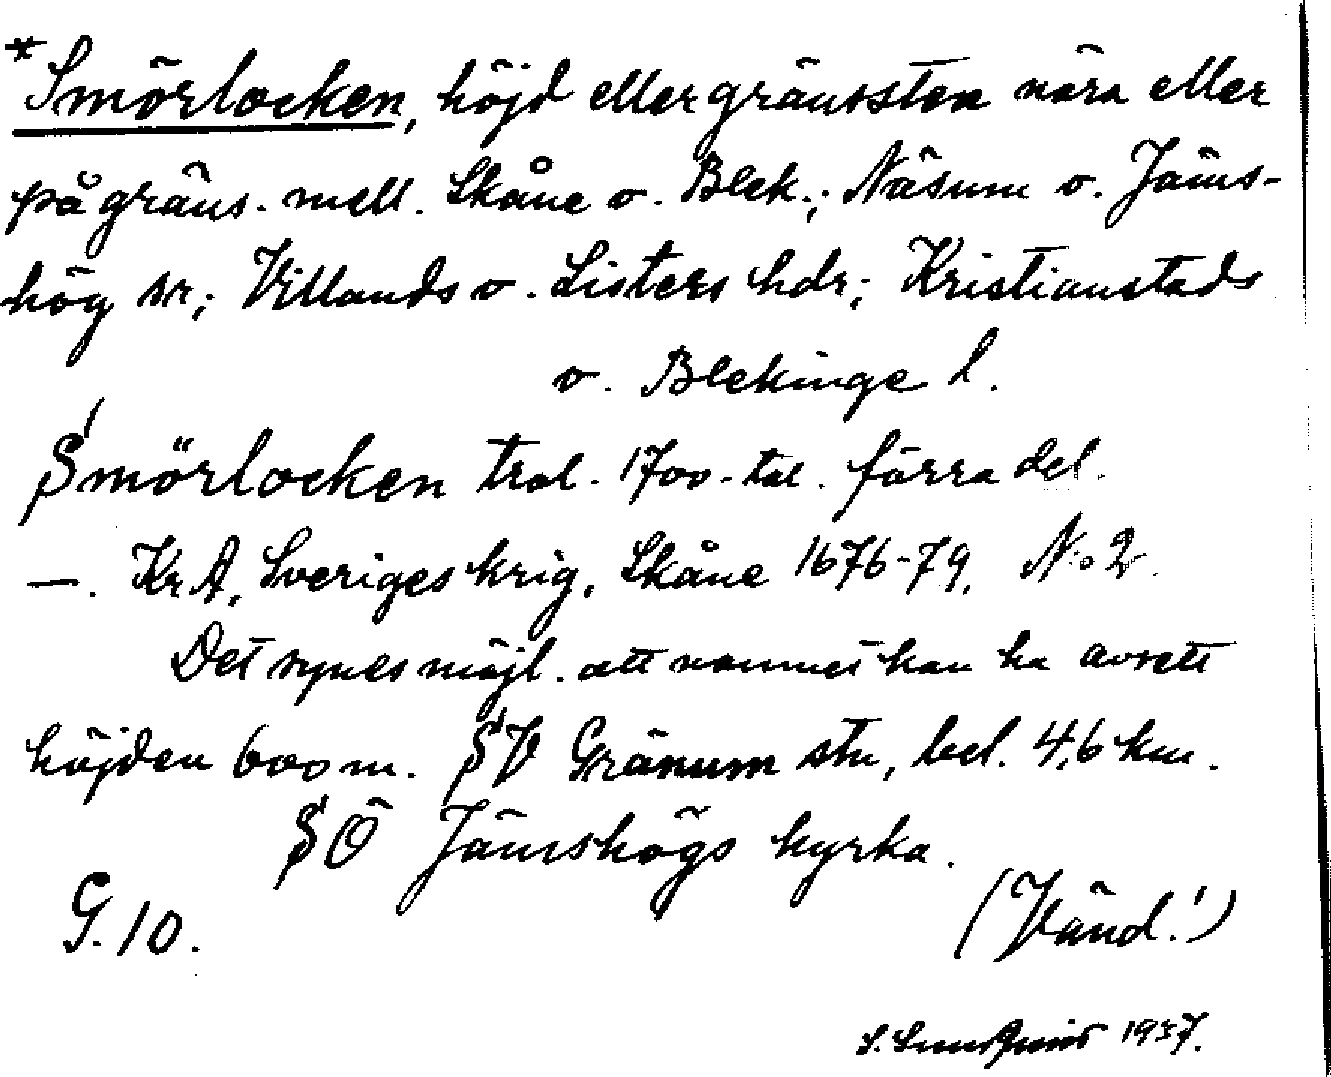 *Smörlocken, höjd eller gränssten nära eller
på gräns. mell. Skåne o. Blek.; Näsum o. Jäms-
hög snr; Villands o. Listers hdr; Kristianstads
o. Blekinge l.
Smörlocken trol. 1700-tal. förra del.
—. KrA, Sveriges krig, Skåne 1676-79, N:o 2.
Det synes möjl. att namnet kan ha avsett
höjden 600 m. SV Gränum stn, bel. 4,6 km.
SÖ Jämshögs kyrka.
G. 10.
(Vänd!)
S. Lundquist 1937.